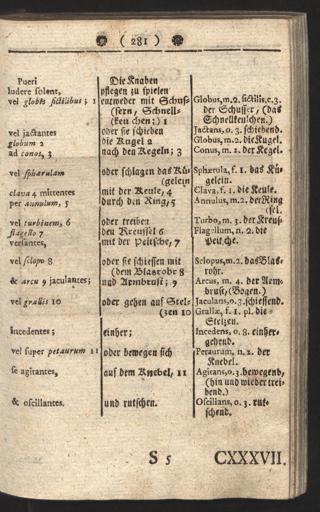 ( 281 )
Pueri
ludere solent,
vel globis fictilibus; 1
vel jactantes
globum 2
ad conos, 3
vel sphærulam
clava 4 mittentes
per annulum, 5
vel turbinem, 6
flagello 7
versantes,
vel sclopo 8
& arcu 9 jaculantes;
vel grallis 10
incedentes;
vel super petaurum 11
se agitantes,
& oscillantes.
Die Knaben
pflegen zu spielen
entweder mit Schus-
(sern, Schnell-
(keulchen;) 1
oder sie schieben
die Kugel 2
nach den Kegeln; 3
oder schlagen das Kü-
(gelein
mit der Keule, 4
durch den Ring, 5
oder treiben
den Kreussel 6
mit der Peitsche, 7
oder sie schiessen mit
(dem Blasrohr 8
und Armbrust; 9
oder gehen auf Stel-
(zen 10
einher;
oder bewegen sich
auf dem Knebel, 11
und rutschen.
Globus, m. 2. fictilis, e. 3.
der Schusser, (das
Schnellkeulchen.)
Jactans, o. 3. schiebend.
Globus, m. 2. die Kugel.
Conus, m. 2. der Kegel.
Sphærula, f. 1. das Kü-
gelein.
Clava, f. 1. die Keule.
Annulus, m. 2. der Ring
Turbo, m. 3. der Kreus-
(sel.
Flagellum, n. 2. die
Peitsche.
Sclopus, m. 2. das Blas-
rohr.
Arcus, m. 4. der Arm-
brust, (Bogen.)
Jaculans, o. 3. schiessend.
Grallæ, f. 1. pl. die
Stelzen.
Incedens, o. 3. einher-
gehend.
Petaurum, n. 2. der
Knebel.
Agitans, o. 3. bewegend,
(hin und wieder trei-
bend.)
Oscillans, o. 3. rut-
schend.
S 5
CXXXVII.